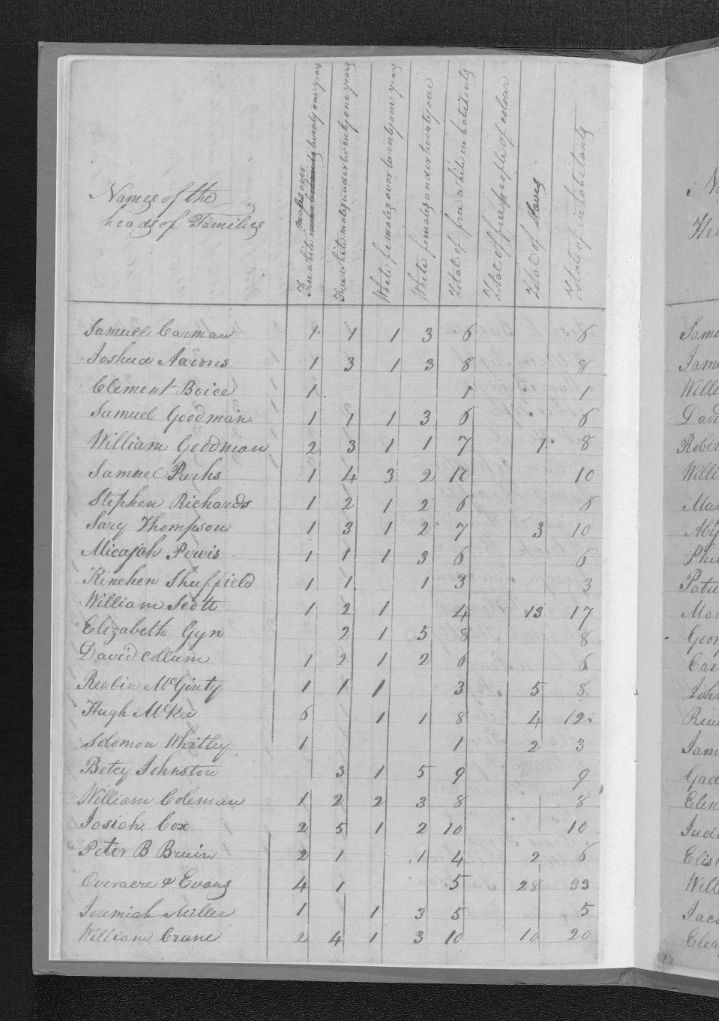 Names of the
heads of Families
males over
Free white twenty one years
Free white males under twenty one years
White females over twenty one years
White females under twenty one
Total of free white inhabitants
Total of free people of colour
Total of slaves
Total of inhabitants
Samuel Carman 1 1 1 3 6 6
Joshua Aarons 1 3 1 3 8 8
Clement Boice 1 1 1
Samuel Goodman 1 1 1 3 6 6
William Goodman 2 3 1 1 7 1 8
Samuel Parks 1 4 3 2 10 10
Stephen Richards 1 2 1 2 6 6
Sary Thompson 1 3 1 2 7 3 10
Micajah Pewis 1 1 1 3 6 6
Kinchen Sheffield 1 1 1 3 3
William Scott 1 2 1 4 13 17
Elizabeth Gyn 2 1 5 8 8
David Collum 1 2 1 2 6 6
Reubin McGinty 1 1 1 3 5 8
Hugh McKee 6 1 1 8 4 12
Solomon Whitley 1 1 2 3
Betcy Johnston 3 1 5 9 9
William Coleman 1 2 2 3 8 8
Josiah Cox 2 5 1 2 10 10
Peter B Bruin 2 1 1 4 2 6
Overacre & Evans 4 1 5 28 33
Jeremiah Miller 1 1 3 5 5
William Crane 2 4 1 3 10 10 20